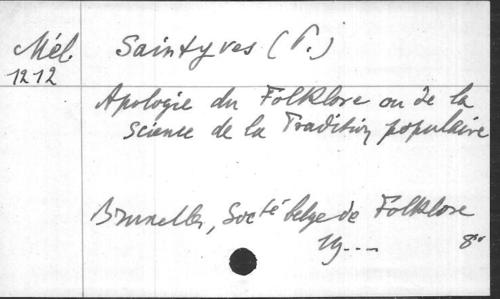 Mél. Saintyves (P.)
1212
Apologie du Folklore ou de la
Science de la Tradition populaire
Bruxelles, Socté belge de Folklore
19--- 8°